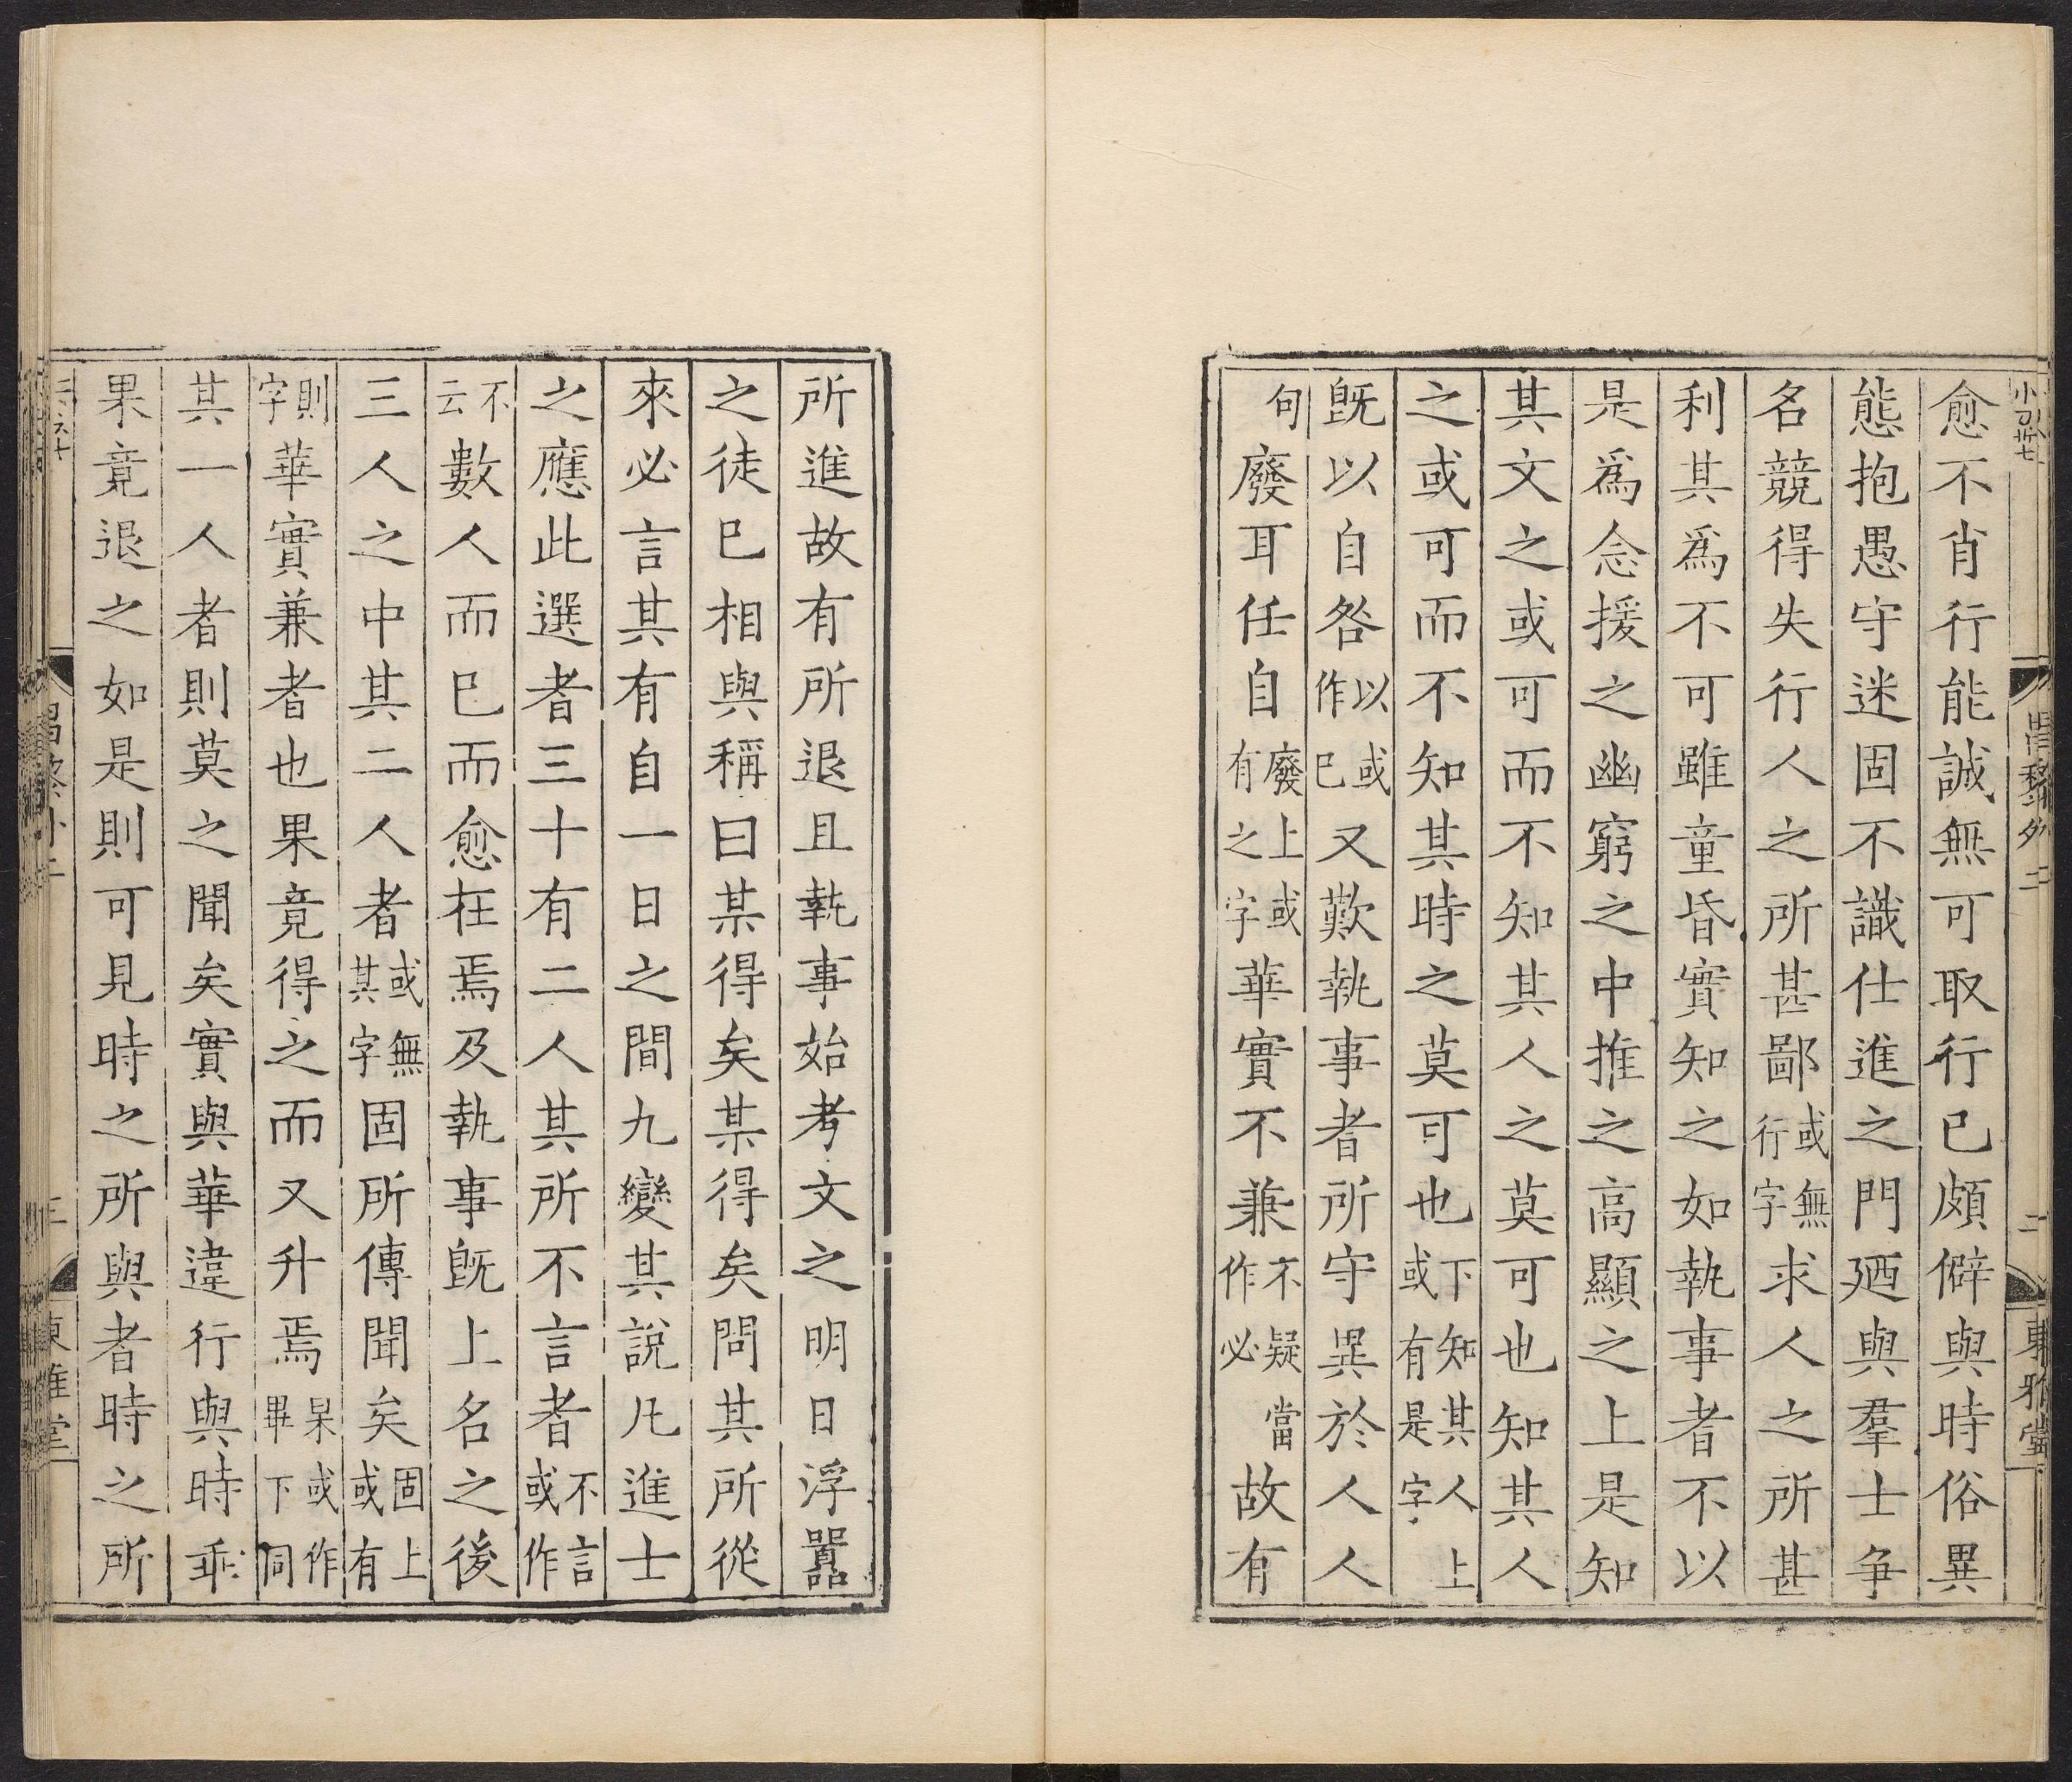 愈不肖行能誠無可取行已頗僻與時俗異
態抱愚守迷固不識仕進之門廼與羣士争
名競得失行人之所甚鄙或無行字求人之所甚
利其爲不可雖童昏實知之如執事者不以
是爲念援之幽窮之中推之高顯之上是知
其文之或可而不知其人之莫可也知其人
之或可而不知其時之莫可也下知其人上或有是字
既以自咎以或作已又歎執事者所守異於人人
句廢耳任自廢上或有之字華實不兼不疑當作必故有
所進故有所退且執事始考文之明日浮囂
之徒已相與稱曰某得矣某得矣問其所從
來必言其有自一日之間九變其說凡進士
之應此選者三十有二人其所不言者不言或作
不云數人而已而愈在焉及執事既上名之後
三人之中其二人者或無其字固所傳聞矣固上或有
則字華實兼者也果竟得之而又升焉杲或作畢下同
其一人者則莫之聞矣實與華違行與時乖
果竟退之如是則可見時之所與者時之所
昌黎外二
二
東雅堂